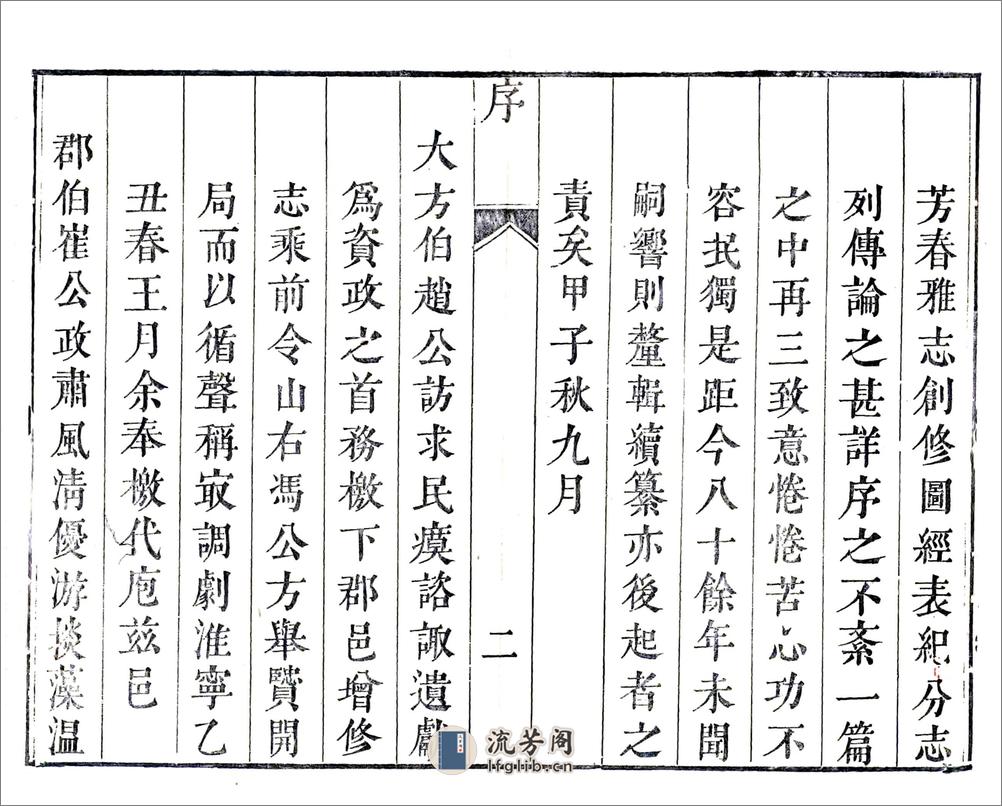 芳春雅志創修圖經表紀分志
列傳論之甚詳序之不紊一篇
之中再三致意惓惓苦心功不
容泯獨是距今八十餘年未聞
嗣響則釐輯續纂亦後起者之
責矣甲子秋九月
序
二
大方伯趙公訪求民瘼諮諏遺獻
爲資政之首務檄下郡邑增修
志乘前令山右馮公方舉贒開
局而以循聲稱㝡調劇淮寧乙
丑春王月余奉檄代庖兹邑
郡伯崔公政肅風淸優游掞藻温
流芳阁
lfglib.cn